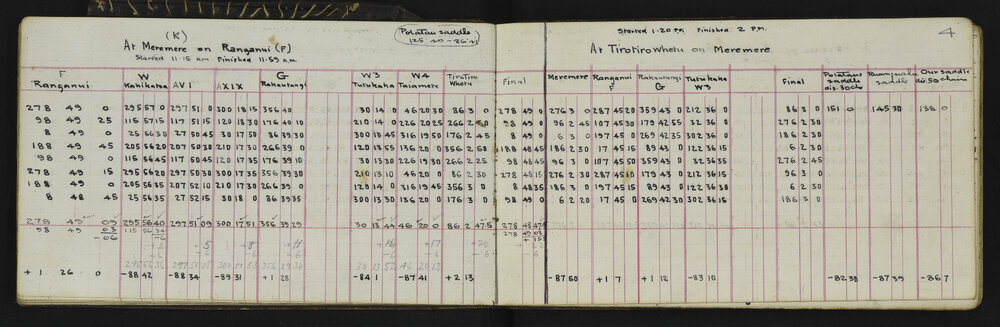 (K)
Potatau saddle
125 40 - 86 41
At Meremere on Ranganui (F)
Started 11-15 am Finished 11-59 a.m.
F W G W3 W4 Tirotiro Final
Ranganui Kohikatea AVI AXIX Rakautangi Tutukaka Talamere Whetu
278 49 0 295 57 0 297 51 0 300 18 15 356 40 30 14 0 46 20 30 86 3 0 278 49 0
98 49 25 115 57 15 117 51 15 120 18 30 176 40 10 210 14 0 226 20 25 266 2 98 49 0
8 49 0 25 56 30 27 50 45 30 17 50 86 39 30 300 13 45 316 19 50 176 2 45 8 49 0
188 49 45 205 56 20 207 50 30 210 17 30 266 39 0 120 13 55 136 20 0 356 2 50 188 48 45
98 49 0 115 56 45 117 50 45 120 17 35 176 39 10 30 13 30 226 19 30 266 2 25 98 48 45
278 49 15 295 56 20 297 50 30 300 17 35 356 39 30 210 13 10 46 20 0 86 2 30 278 48 15
188 49 0 205 56 35 207 52 10 210 17 30 266 39 0 120 14 0 316 19 45 356 3 0 8 48 35
8 48 45 25 56 35 27 52 15 30 18 0 86 39 35 300 13 30 136 20 0 176 3 0 98 49 0
278 49 09 295 56 40 297 51 09 300 17 51 356 39 29 30 13 44 46 20 0 86 2 47.5 278 48 47.5
98 49 03 115 56 34 278 49 03
-06 -6
+2 +5 +8 +11 +14 +17 +20
-6 -6 -6 -6 -6 -6
295 56 36 297 51 08 300 17 53 356 29 34 30 13 52 46 20 13
+1 26 0 -88 42 -88 34 -89 31 +1 28 -84 1 -87 41 +2 13
Started 1-20 P.M. Finished 2 P.M.
4
At Tirotiro Whetu on Meremere
Meremere Ranganui Rakautangi Tutukaka Final Potatau Ruanguahu Our saddle
F G W3 saddle saddle dis. 50 chains
dis. 30 chs
276 3 0 287 45 20 359 43 0 212 36 0 86 3 0 151 0 145 30 138 0
96 2 45 107 45 30 179 42 55 32 36 0 276 2 30
6 3 0 197 45 0 269 42 35 302 36 15 186 2 30
186 2 30 17 45 15 89 43 0 122 36 15 6 2 30
96 3 0 107 45 50 359 43 0 32 36 35 276 2 45
276 2 30 287 45 10 179 43 0 212 36 15 96 3 0
186 3 0 197 45 15 89 43 0 122 36 30 6 2 30
6 2 20 17 45 0 269 42 30 302 36 15 186 3 0
-87 60 +1 7 +1 12 -83 10 -82 38 -87 39 -86 7